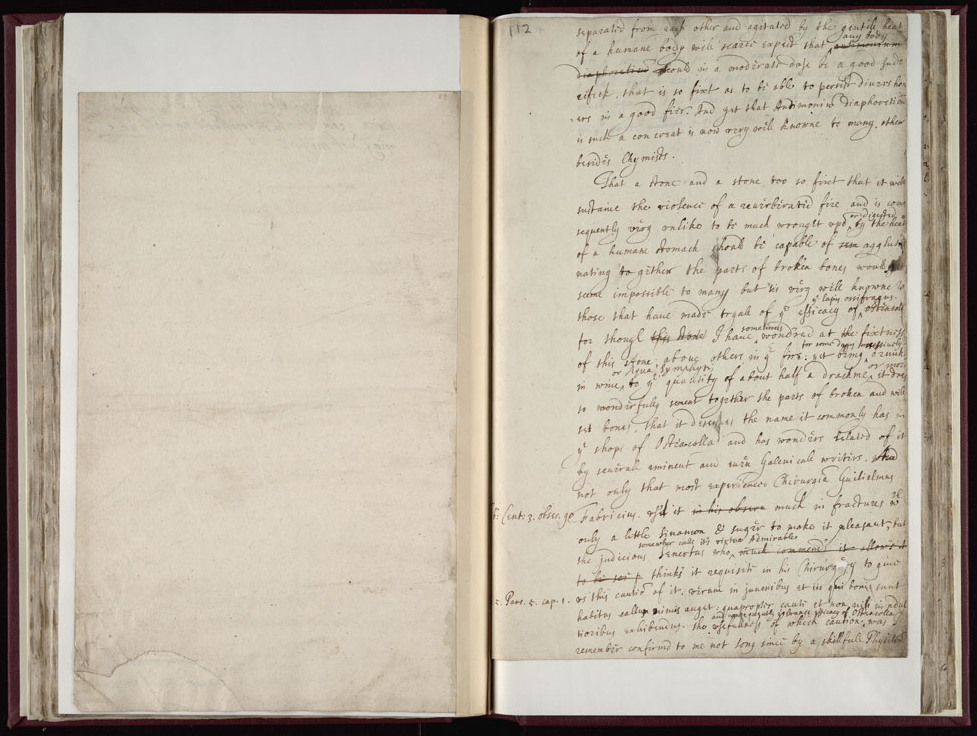 112
separated from each other and agitated by the gentile heat
any body
of a humane body will scarce expect that antimonium
diaphoreticum should in a moderate dose be a good sudo
rifick, that is so fixt as to be able to persist divers hou
ers in a good fire. And yet that Antimonium Diaphoreticum
is such a concreat is now very well knowne to many other
besides Chymists.
That a stone and a stone too so fixt that it will
sustaine the violence of a reverberated fire and is con
or digested
sequently very unlike to be much wrought upō by the heat
of a humane stomach should be capable of agglut
nating to gither the parts of broken bones would
seeme impossible to many but tis very well knowne to
yᵉ lapis ossifragus.
those that have made tryale of yᵉ efficacy of Osteacolla
sometimes
for though this stone I have wondred at the fixtness
for some days
of this stone above others in yᵉ fire: yet being drunk
or Aqua Symphyti
or more
in wine to yᵉ quantity of about half a drachme it does
so wonderfully cement together the parts of broken and well
set bones, that it deserves the name it commonly has in
yᵉ shops of Osteacolla and has wonders related of it
by severall eminent and even Galenicall writers.
not only that most experienced Chirurgiā Guilielmus
Cent: 3. obser. 90 Fabricius. used it in his obserū much in fractures wᵗʰ
only a little Sinamon & suger to make it pleasant, but
somewher calls its vertue Admirable
the judicious Senertus who much commend it allows it
thinks it requisite in his Chirurgery to give
5. Part. 5. cap. 1. us this cautiō of it. verum in juvenibus et iis qui boni sunt
habitus callum nimis auget: quapropter cautè et non nisi in
and
efficacy of Osteocolla
tioribus exhibendus. the usefulness of which caution, was I
remember confirmed to me not long since by a skillfull Physitiā